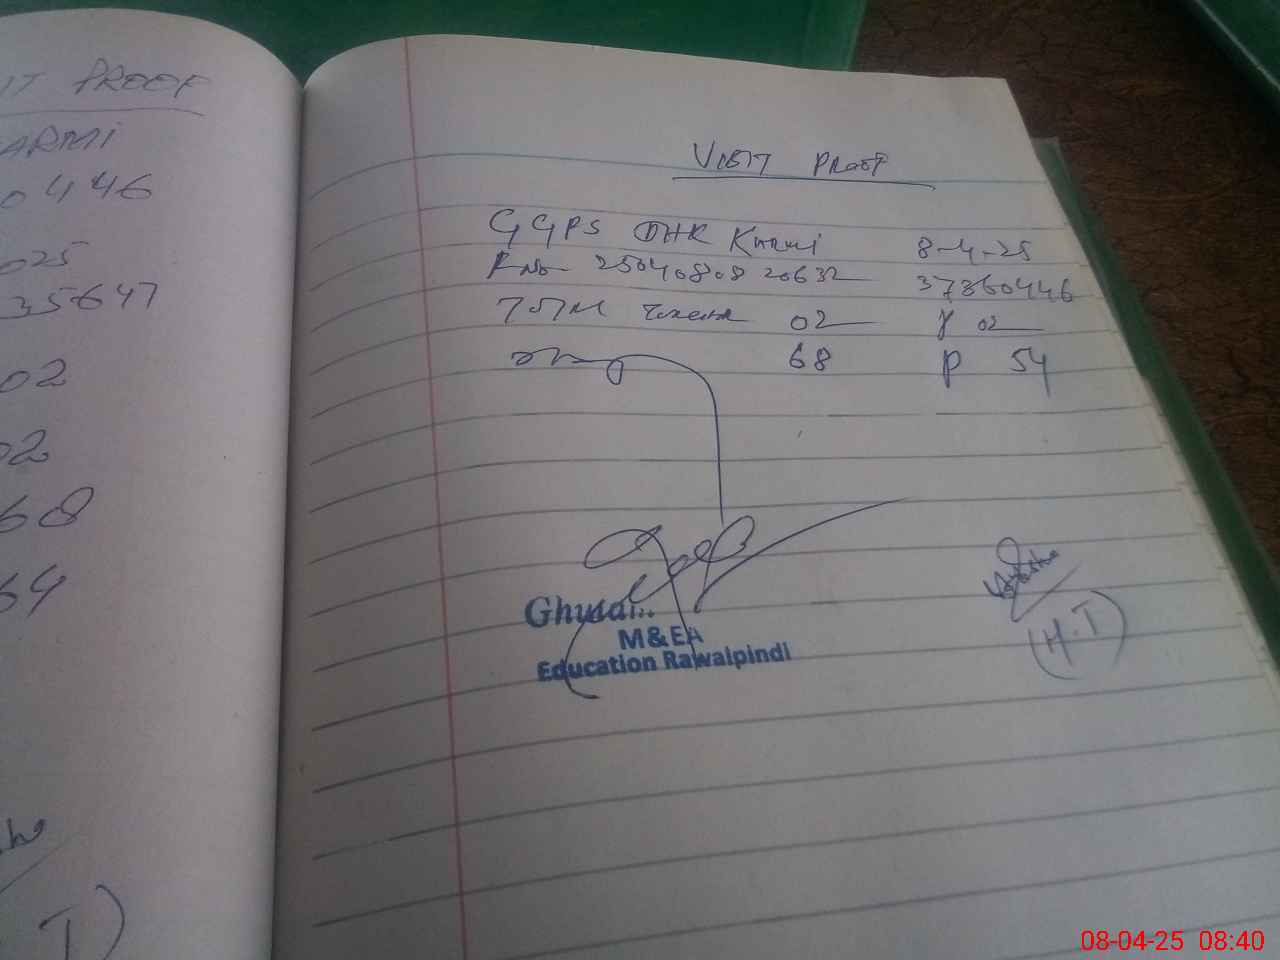 IT PROOF
ARMI
0446
025
35647
02
02
68
64
VISIT PROOF
GGPS DHK Karmi 8-4-25
R No 25040808 20632 37360446
Total Teacher 02 P 02
68 P 54
M&EA
Education Rawalpindi
(H.T)
T)
08-04-25 08:40